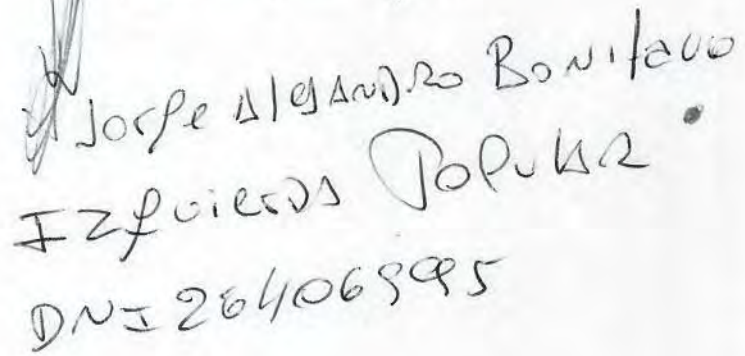 Jorge Alejandro Bonifacio
Izquierda Popular
DNI